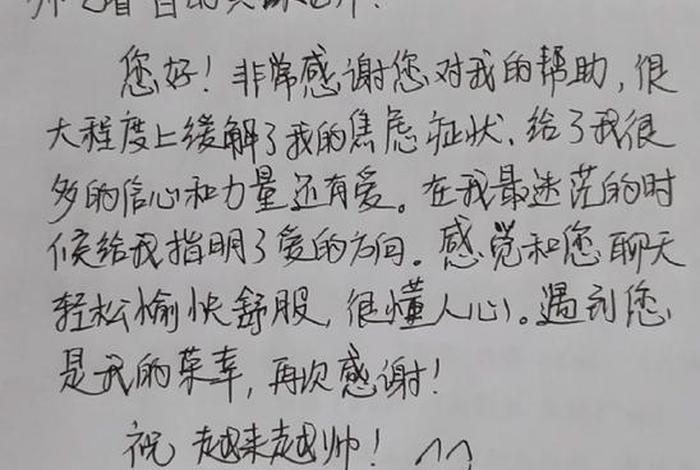 您好！非常感谢您对我的帮助，很
大程度上缓解了我的焦虑症状、给了我很
多的信心和力量还有爱。在我最迷茫的时
候给我指明了爱的方向。感觉和您聊天
轻松愉快舒服，很懂人心。遇到您
是我的荣幸，再次感谢！
祝 越来越帅！ ^^